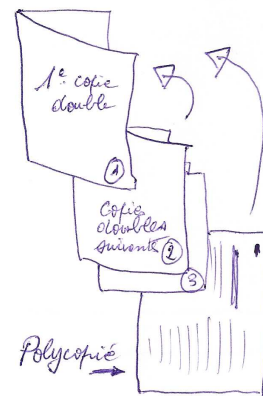 1e copie
double
1
Copies
doubles
suivantes
2
3
Polycopié